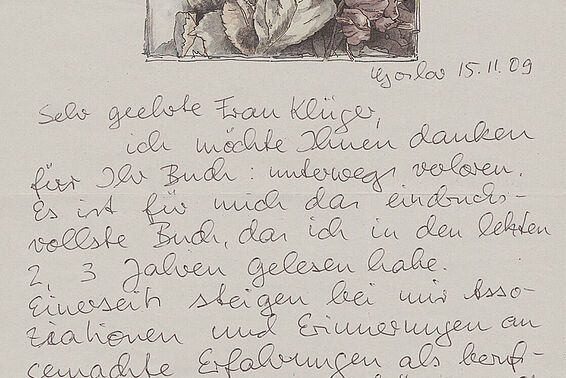 Goslar 15.11.09
Sehr geehrte Frau Klüger,
ich möchte Ihnen danken
für Ihr Buch: unterwegs verloren.
Es ist für mich das eindrucks-
vollste Buch, das ich in den letzten
2, 3 Jahren gelesen habe.
Einerseits steigen bei mir Asso-
ziationen und Erinnerungen an
gemachte Erfahrungen als beruf-